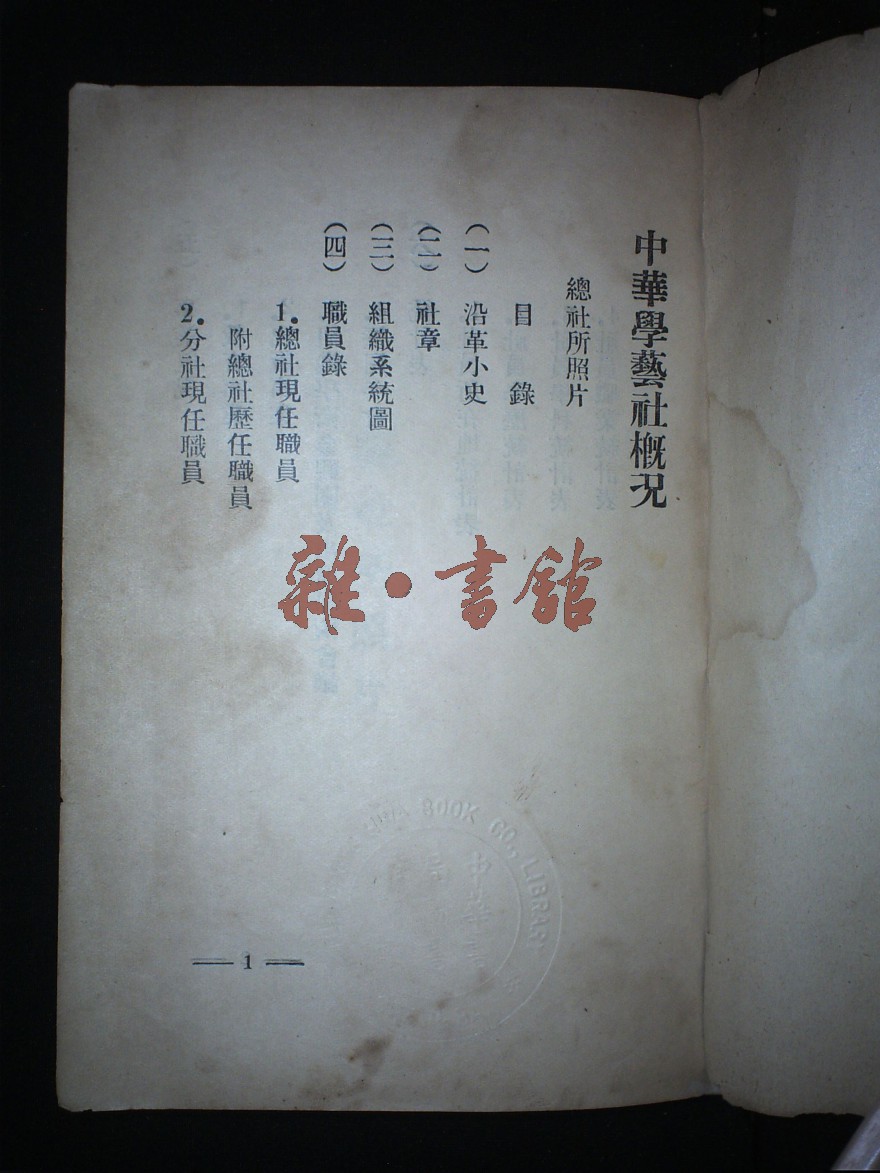 中華學藝社概況
總社所照片
目錄
(一) 沿革小史
(二) 社章
(三) 組織系統圖
(四) 職員錄
1.總社現任職員
附總社歷任職員
2.分社現任職員
雜·書館
BOOK CO., LIBRARY
1